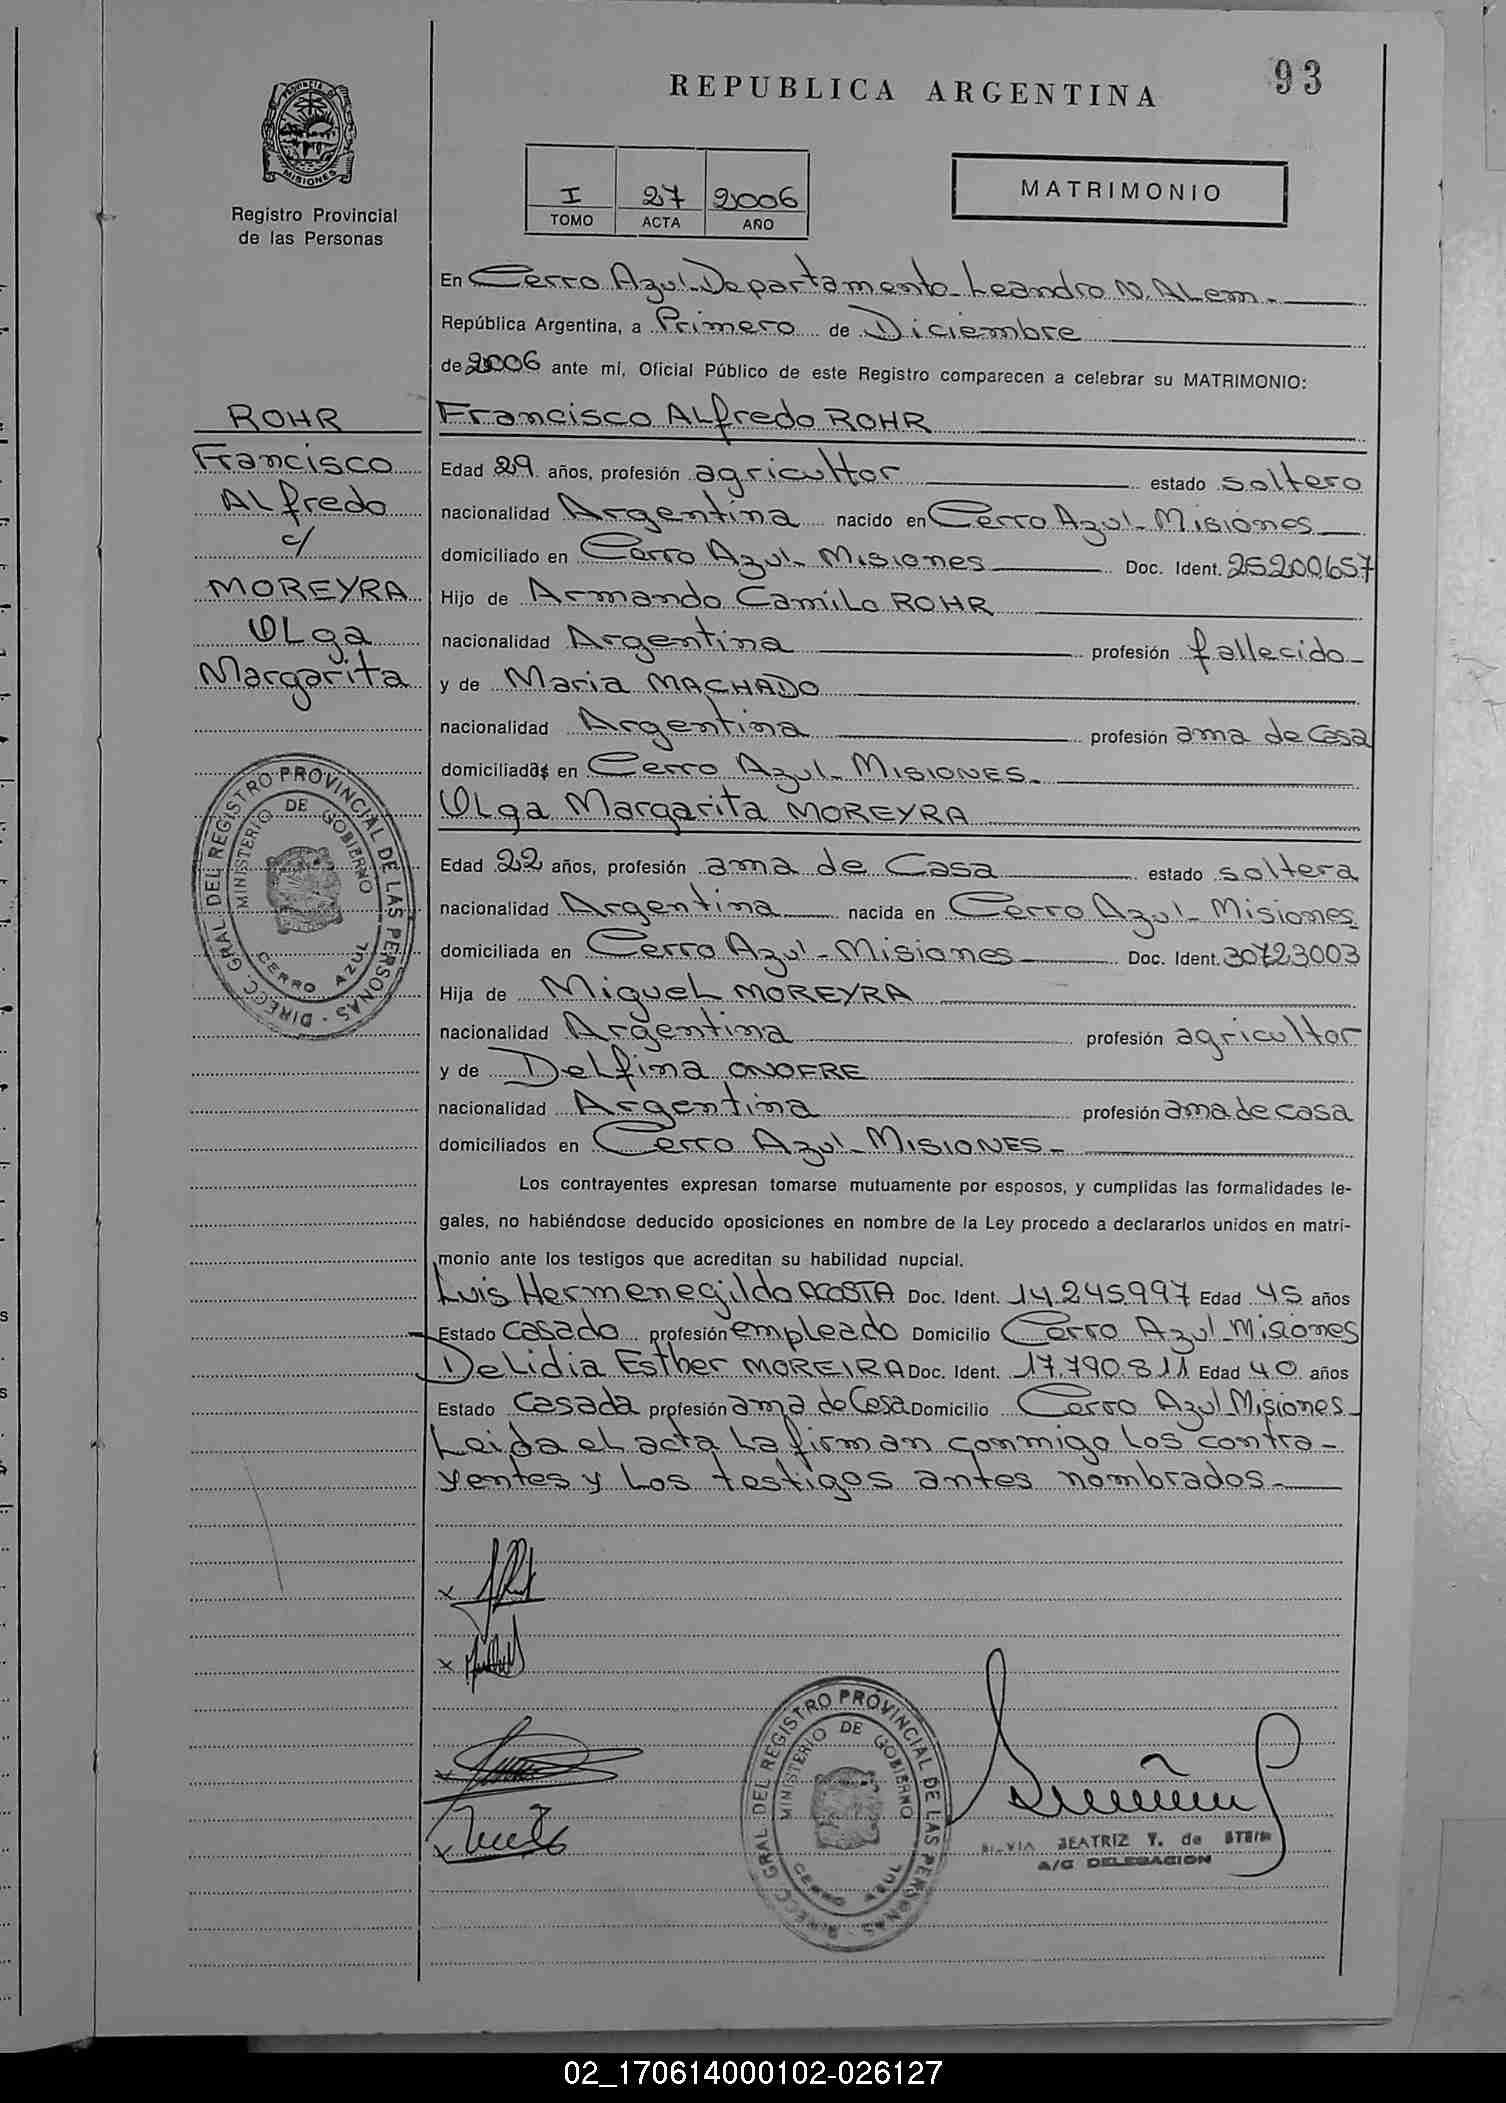 93
REPUBLICA ARGENTINA
PROVINCIA DE
MISIONES
Registro Provincial
de las Personas
I 27 2006
TOMO ACTA AÑO
MATRIMONIO
En Cerro Azul-Departamento-Leandro N. ALem-
República Argentina, a Primero de Diciembre
de 2006 ante mí, Oficial Público de este Registro comparecen a celebrar su MATRIMONIO:
ROHR
Francisco
ALfredo
c/
MOREYRA
OLga
Margarita
Francisco ALfredo ROHR
Edad 29 años, profesión agricultor estado soltero
nacionalidad Argentina nacido en Cerro Azul-Misiones
domiciliado en Cerro Azul-Misiones Doc. Ident. 25200657
Hijo de Armando Camilo ROHR
nacionalidad Argentina profesión fallecido-
y de Maria MACHADO
nacionalidad Argentina profesión ama de Casa
domiciliadas en Cerro Azul-MISIONES-
OLga Margarita MOREYRA
Edad 22 años, profesión ama de Casa estado soltera
nacionalidad Argentina nacida en Cerro Azul-Misiones
domiciliada en Cerro Azul-Misiones Doc. Ident. 30723003
Hija de Miguel MOREYRA
nacionalidad Argentina profesión agricultor
y de Delfina ONOFRE
nacionalidad Argentina profesión ama de casa
domiciliados en Cerro Azul-MISIONES-
DIRECC. GRAL DEL REGISTRO PROVINCIAL DE LAS PERSONAS
MINISTERIO DE GOBIERNO
CERRO AZUL
Los contrayentes expresan tomarse mutuamente por esposos, y cumplidas las formalidades le-
gales, no habiéndose deducido oposiciones en nombre de la Ley procedo a declararlos unidos en matri-
monio ante los testigos que acreditan su habilidad nupcial.
Luis Hermenegildo ACOSTA Doc. Ident. 14.245.997 Edad 45 años
Estado casado profesión empleado Domicilio Cerro Azul-Misiones
Delidia Esther MOREIRA Doc. Ident. 17.790.811 Edad 40 años
Estado Casada profesión ama de Casa Domicilio Cerro Azul Misiones
Leida el acta la firman conmigo los contra-
yentes y los testigos antes nombrados-
x
x
x
x
DIRECC. GRAL DEL REGISTRO PROVINCIAL DE LAS PERSONAS
MINISTERIO DE GOBIERNO
CERRO AZUL
SILVIA BEATRIZ Y. de STEIN
A/C DELEGACION
02_170614000102-026127